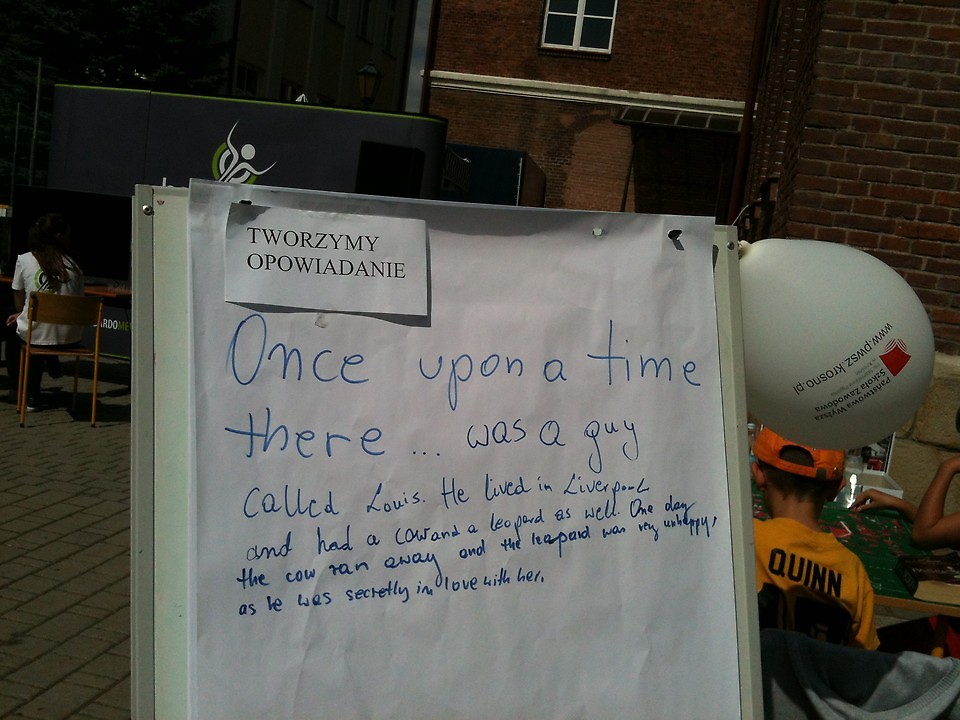 TWORZYMY
OPOWIADANIE
Once upon a time
there ... was a guy
called Louis. He lived in Liverpool
and had a cow and a leopard as well. One day
the cow ran away and the leopard was very unhappy,
as he was secretly in love with her.
www.pwsz.krosno.pl
Państwowa Wyższa
Szkoła Zawodowa
QUINN